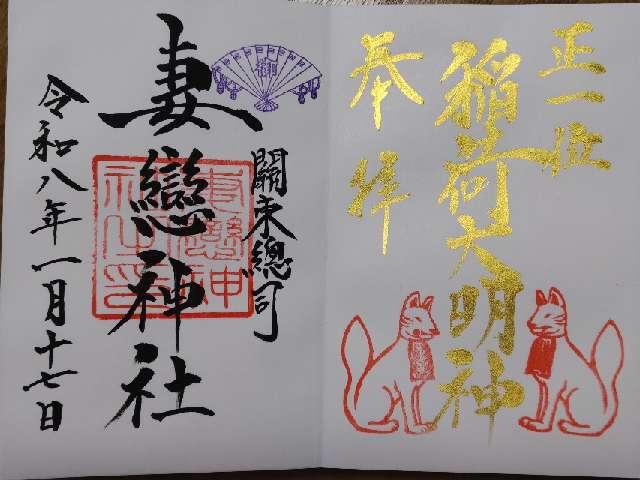 正一位
稲荷大明神
奉拝
關東總司
妻戀神社
令和八年一月十七日
妻戀神
社之印